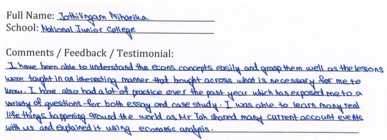 Full Name: Jothilingam Niharika
School: National Junior College
Comments / Feedback / Testimonial:
I have been able to understand the econs concepts easily and grasp them well as the lessons
were taught in an interesting manner that brought across what is necessary for me to
know. I have also had a lot of practice over the past year which has exposed me to a
variety of questions - for both essay and case study. I was able to learn many real
life things happening around the world as Mr Toh shared many current account events
with us and explained it using economic analysis.